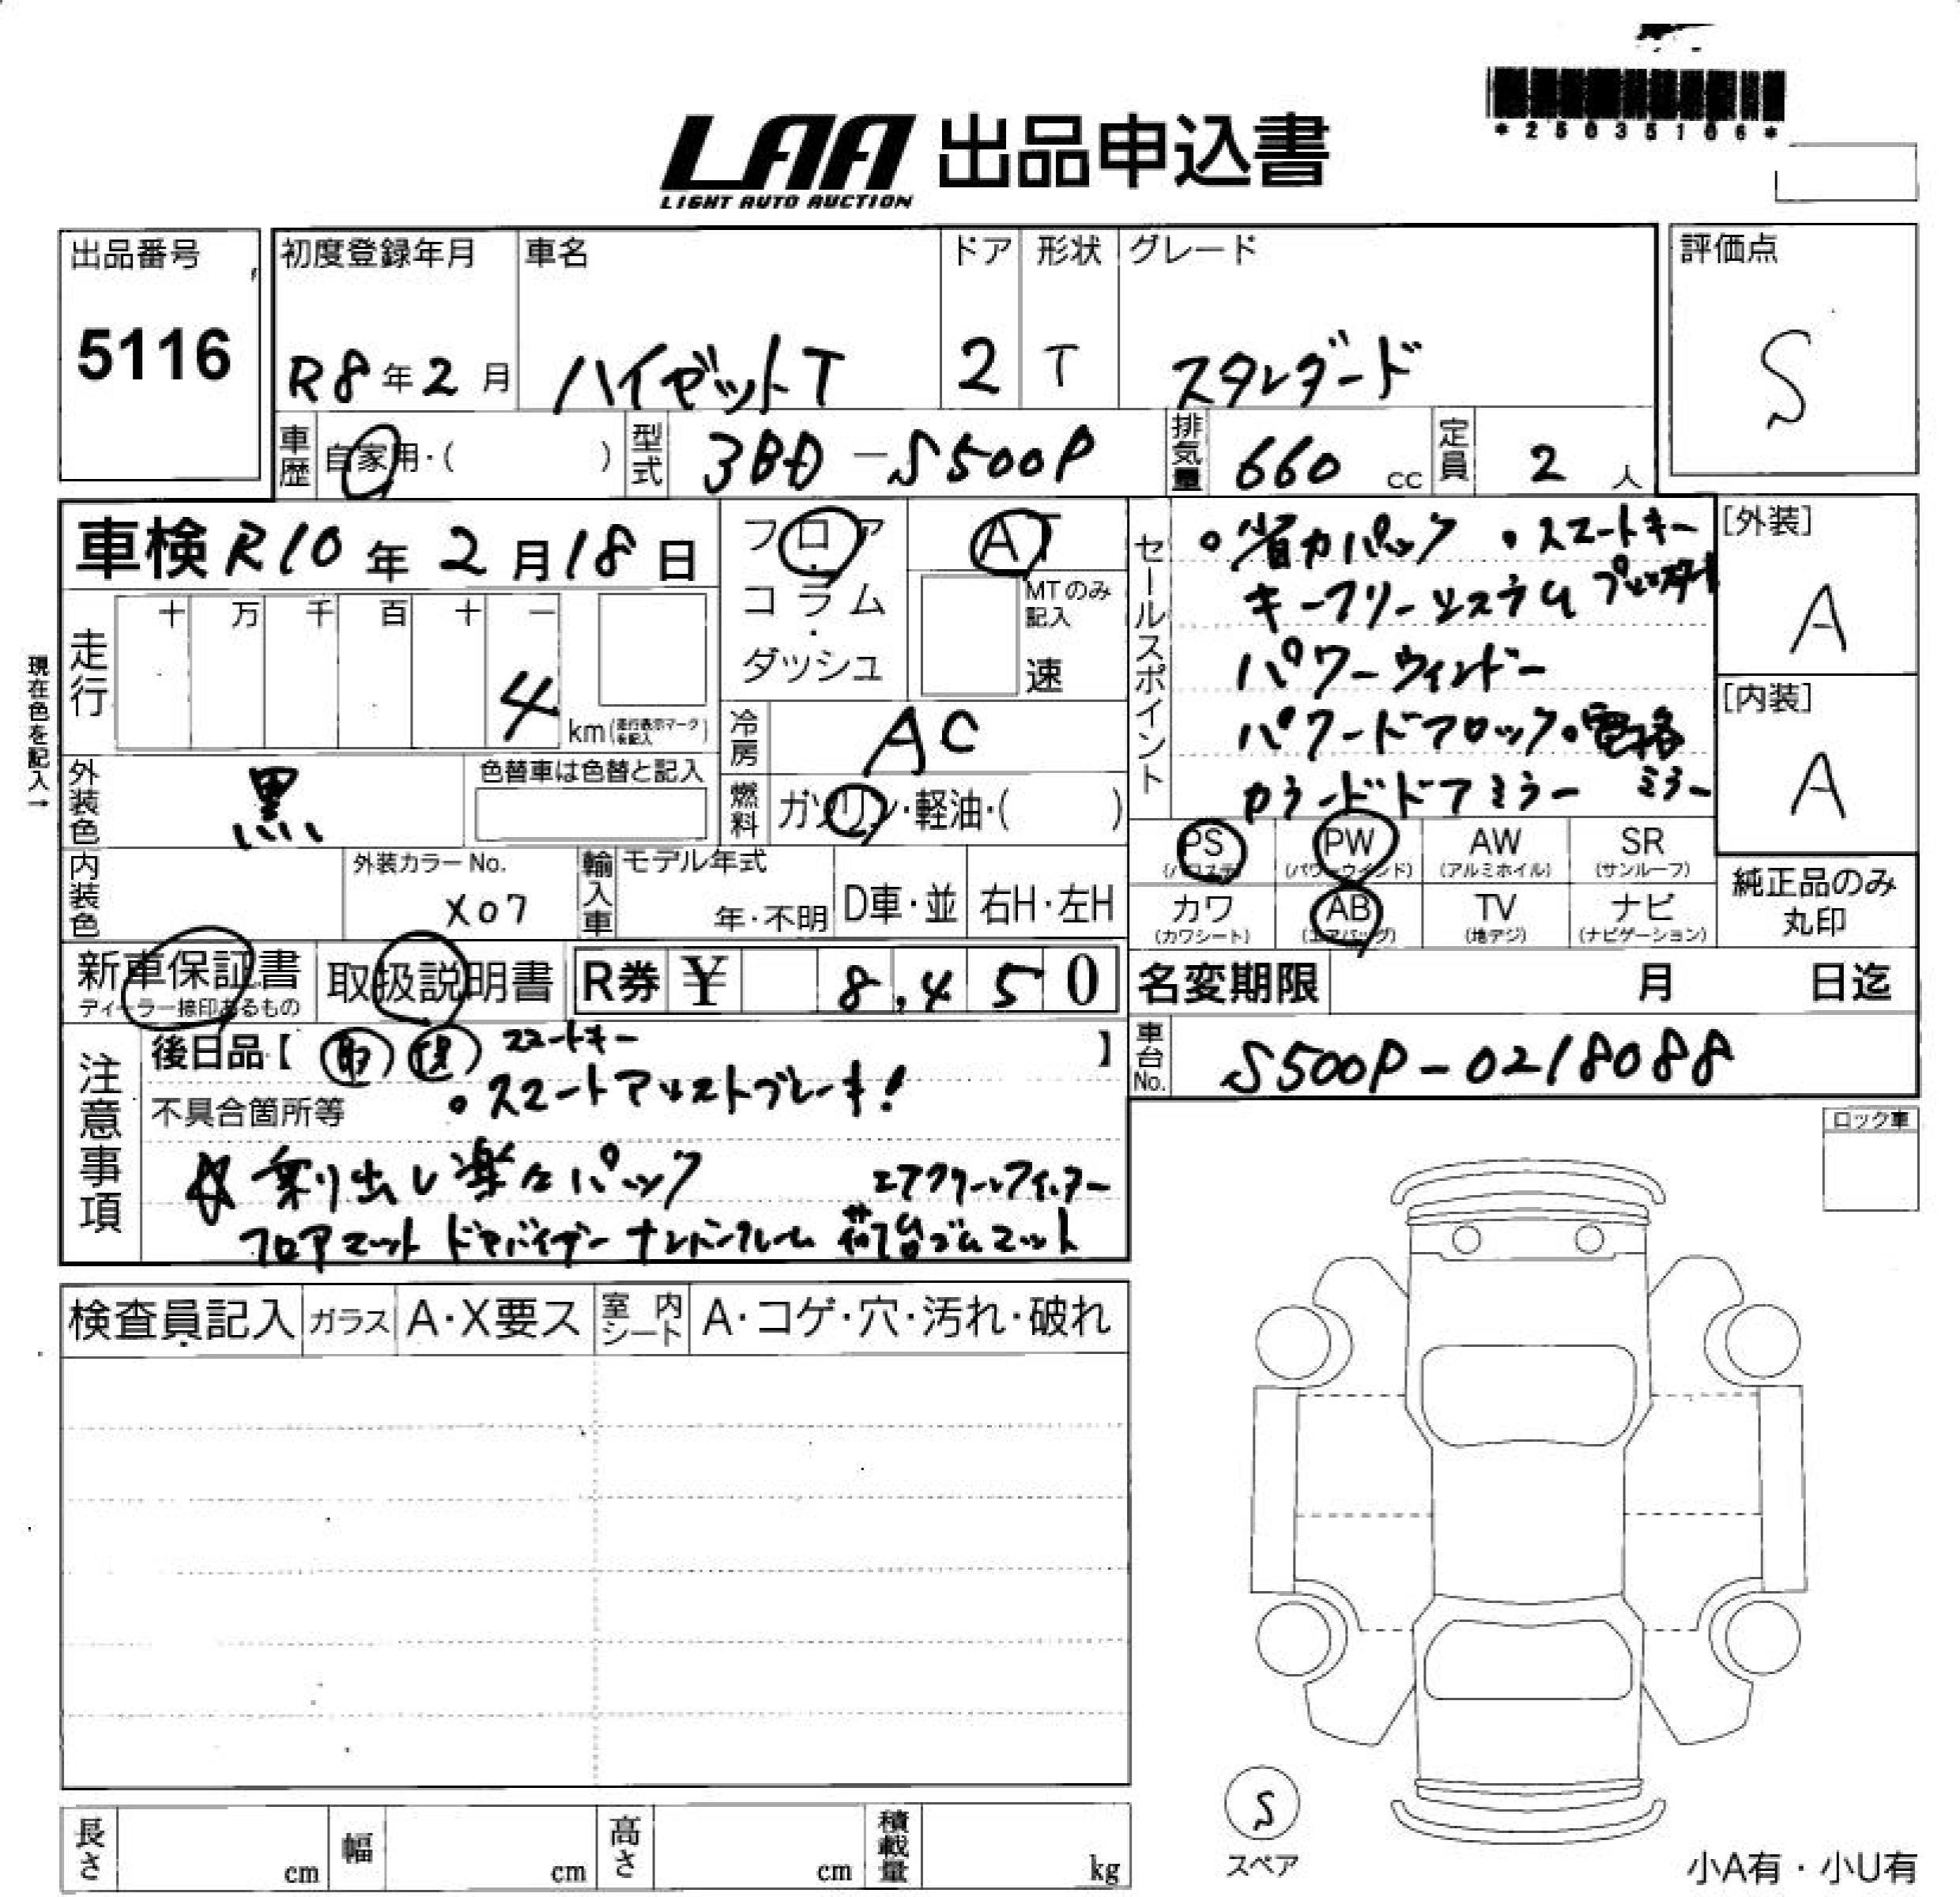 *25035106*
LAA 出品申込書
LIGHT AUTO AUCTION
出品番号
5116
初度登録年月
R8年2月
車名
ハイゼットT
ドア
2
形状
T
グレード
スタンダード
評価点
S
車歴
自家用・( )
型式
3BD-S500P
排気量
660 cc
定員
2 人
車検 R10年2月18日
フロア・コラム・ダッシュ
AT
MTのみ記入
速
セールスポイント
・省力パック ・スマートキー
キーフリーシステム プッシュスタート
パワーウィンドー
パワードアロック・電格ミラー
カラードドアミラー
[外装]
A
[内装]
A
現在色を記入→
走行
十 万 千 百 十 一
4
km(走行表示マークを記入)
冷房
AC
燃料
ガソリン・軽油・( )
外装色
黒
色替車は色替と記入
内装色
外装カラーNo.
X07
輸入車
モデル年式
年・不明
D車・並
右H・左H
PS (パワステ)
PW (パワーウィンド)
AW (アルミホイル)
SR (サンルーフ)
カワ (カワシート)
AB (エアバッグ)
TV (地デジ)
ナビ (ナビゲーション)
純正品のみ丸印
新車保証書
ディーラー捺印あるもの
取扱説明書
R券 ¥ 8,450
名変期限 月 日迄
車台No.
S500P-0218088
注意事項
後日品【 取 保 スマートキー 】
・スマートアシストブレーキ!
不具合箇所等
☆ 乗り出し楽々パック エアクリーンフィルター
フロアマット ドアバイザー ナンバーフレーム 荷台ゴムマット
ロック車
検査員記入 ガラス A・X要ス 室内シート A・コゲ・穴・汚れ・破れ
長さ cm 幅 cm 高さ cm 積載量 kg
S
スペア
小A有・小U有